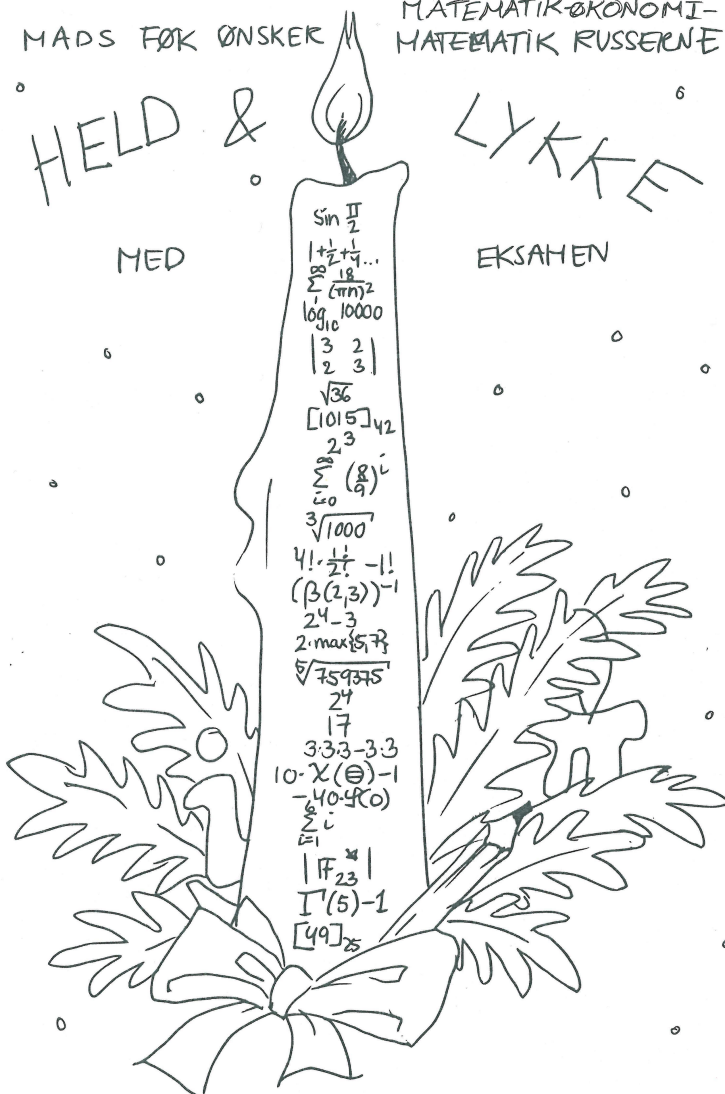 MADS FØK ØNSKER
MATEMATIK-ØKONOMI-
MATEMATIK RUSSERNE
HELD & LYKKE
MED EKSAMEN
sin π/2
1+1/2+1/4...
∞ Σ 1 18/(πn)²
log₁₀ 10000
|3 2|
|2 3|
√36
[1015]₄₂
2³
∞ Σ i=0 (8/9)ⁱ
³√1000
4!·1!/2!-1!
(β(2,3))⁻¹
2⁴-3
2·max{5,7}
⁵√759375
2⁴
17
3·3·3-3·3
10·χ(⊖)-1
-40·ζ(0)
6 Σ i=1 i
|F₂₃*|
Γ(5)-1
[49]₂₅